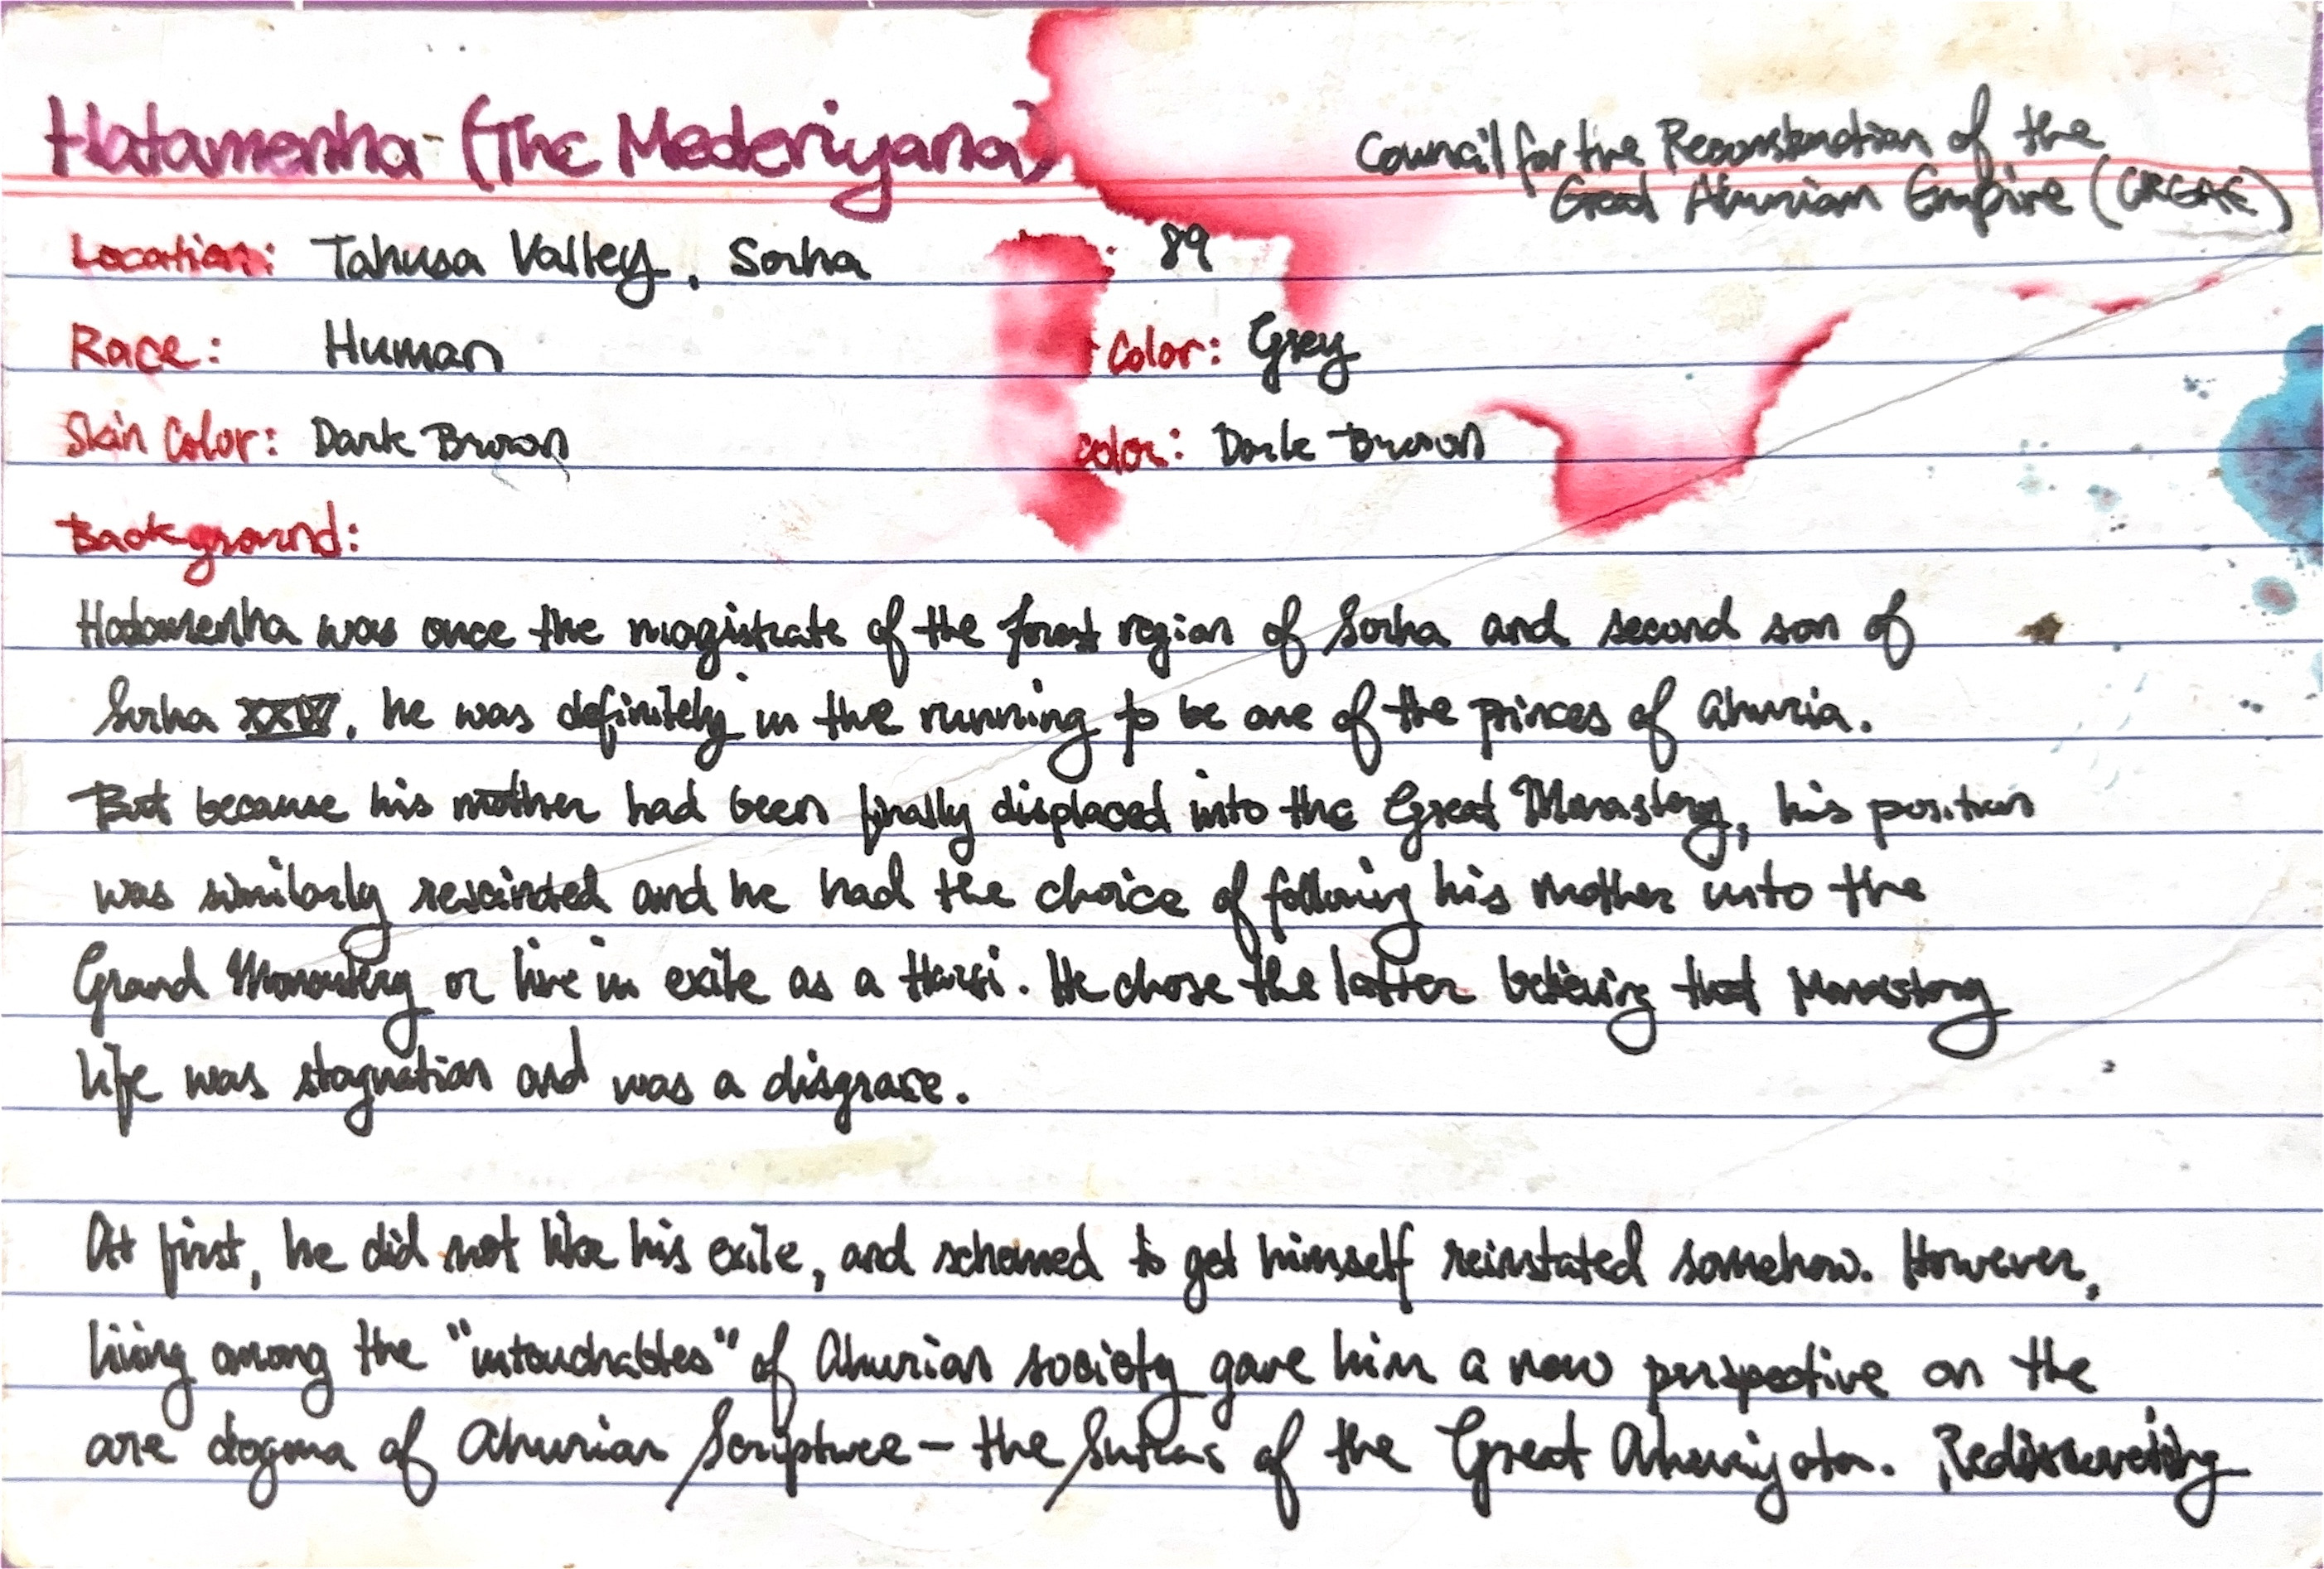 Hatamenha (The Mederiyana)
Council for the Reconstruction of the
Great Ahurian Empire (CRGAE)
Location: Tahusa Valley, Sorha : 89
Race: Human Color: Grey
Skin Color: Dark Brown Color: Dark Brown
Background:
Hatamenha was once the magistrate of the forest region of Sorha and second son of
Sorha XXIV, he was definitely in the running to be one of the princes of Ahuria.
But because his mother had been finally displaced into the Great Monastery, his position
was similarly rescinted and he had the choice of following his mother into the
Grand Monastery or live in exile as a . He chose the latter believing that Monastery
life was stagnation and was a disgrace.
At first, he did not like his exile, and schemed to get himself reinstated somehow. However,
living among the "untouchables" of Ahurian society gave him a new perspective on the
are dogma of Ahurian Scripture – the Sutras of the Great Ahuriyata. Rediscovering